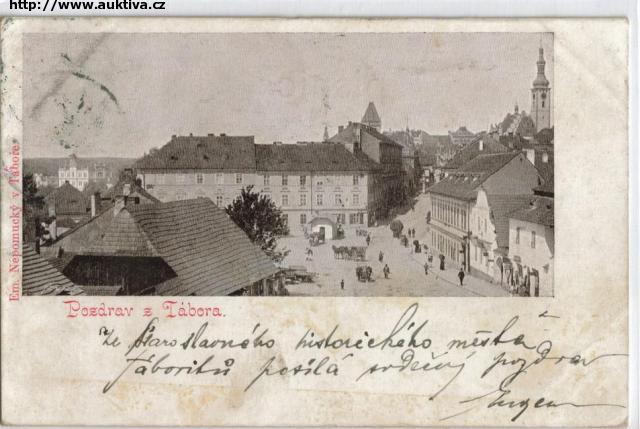 http://www.auktiva.cz
Em. Nepomucký v Táboře.
Pozdrav z Tábora.
Ze staroslavného historického města
Táboritů posílá srdečný pozdrav
Eugen